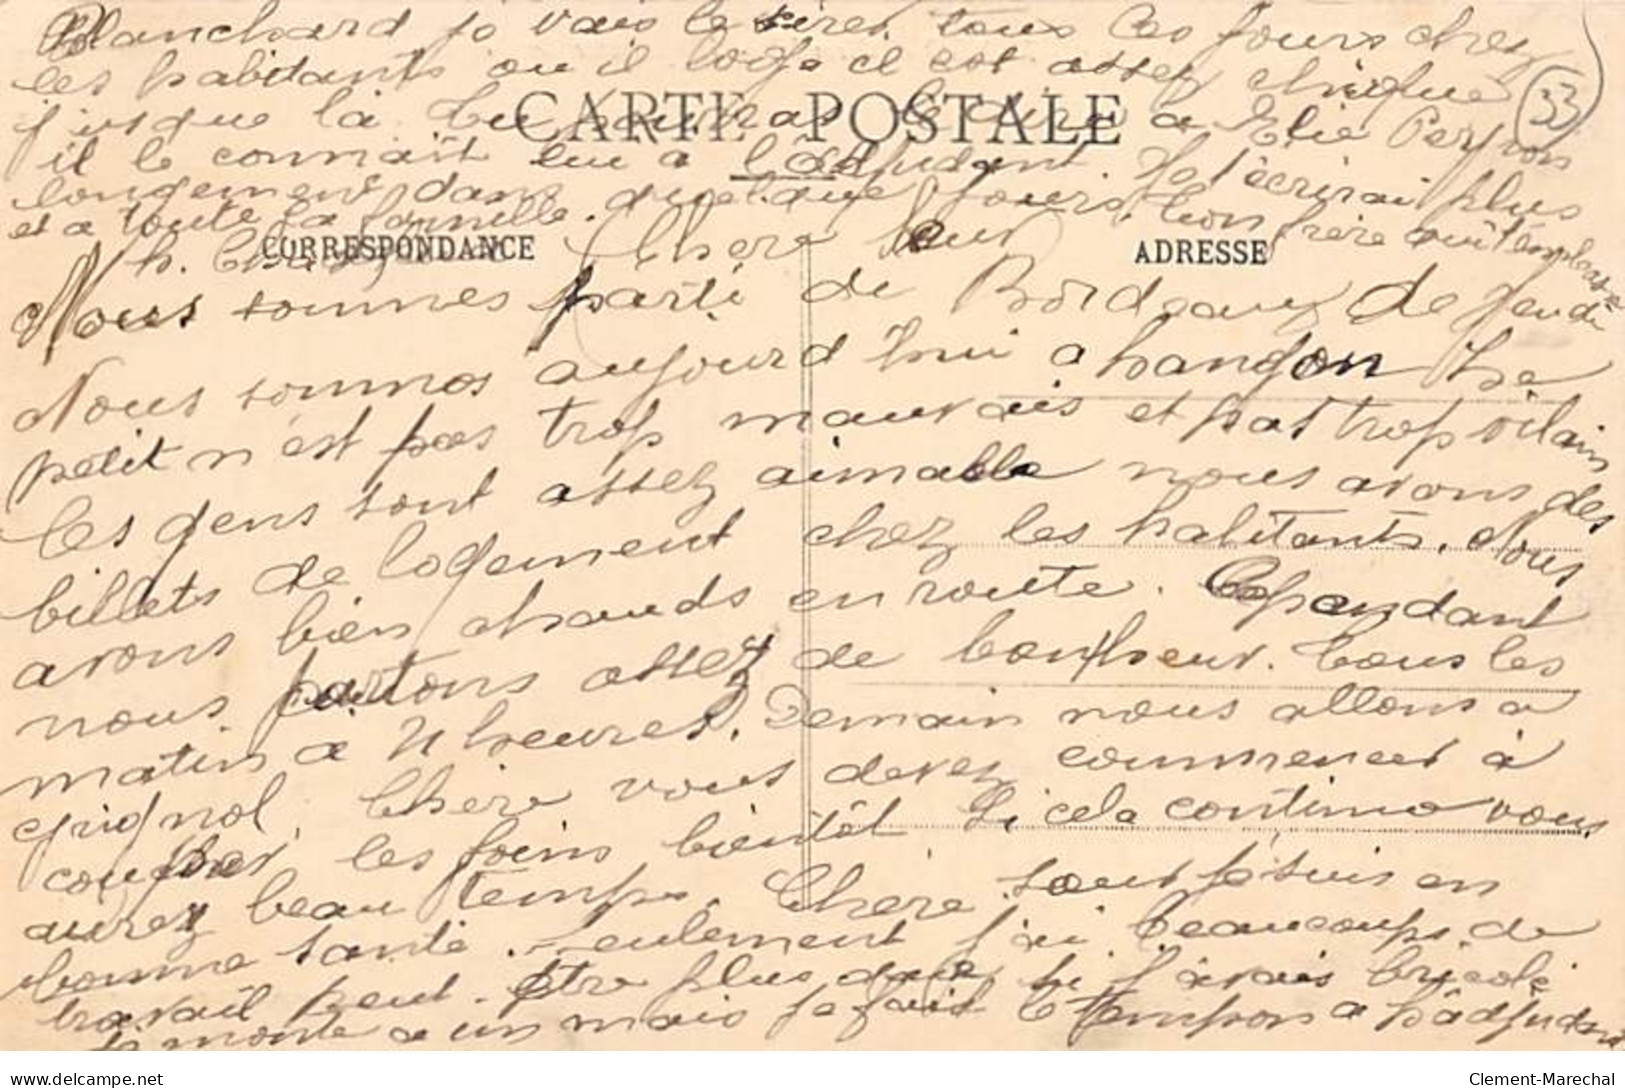 Blanchard je vais le tous les jours chez
les habitants ou il loge il est assez chique
jusque là tu pourras le dire a Elie
33
CARTE POSTALE
il le connait lui a l'adjudant. Je t'écrirai plus
longement dans quelque jours. ton frère qui
et a toute la famille.
CORRESPONDANCE
ADRESSE
Chere Sœur
Nous sommes parti de Bordeaux de jeudi
Nous sommes aujourd'hui a Langon Le
petit n'est pas trop mauvais et pas trop vilain
les gens sont assez aimable nous avons des
billets de logement chez les habitants. Nous
avons bien chauds en route. Cependant
nous partons assez de bonheur. tous les
matin a 4 heures. Demain nous allons a
Grignol. Chere vous devez commencer à
couper les foins bientôt Si cela continue vous
aurez beau temps. Chère sœur je suis en
bonne santé. seulement j'ai beaucoups de
travail peut-être plus que si j'avais bricolé
monte a un mais je fait le tempon a l'adjudant
Clement-Marechal
delcampe.net